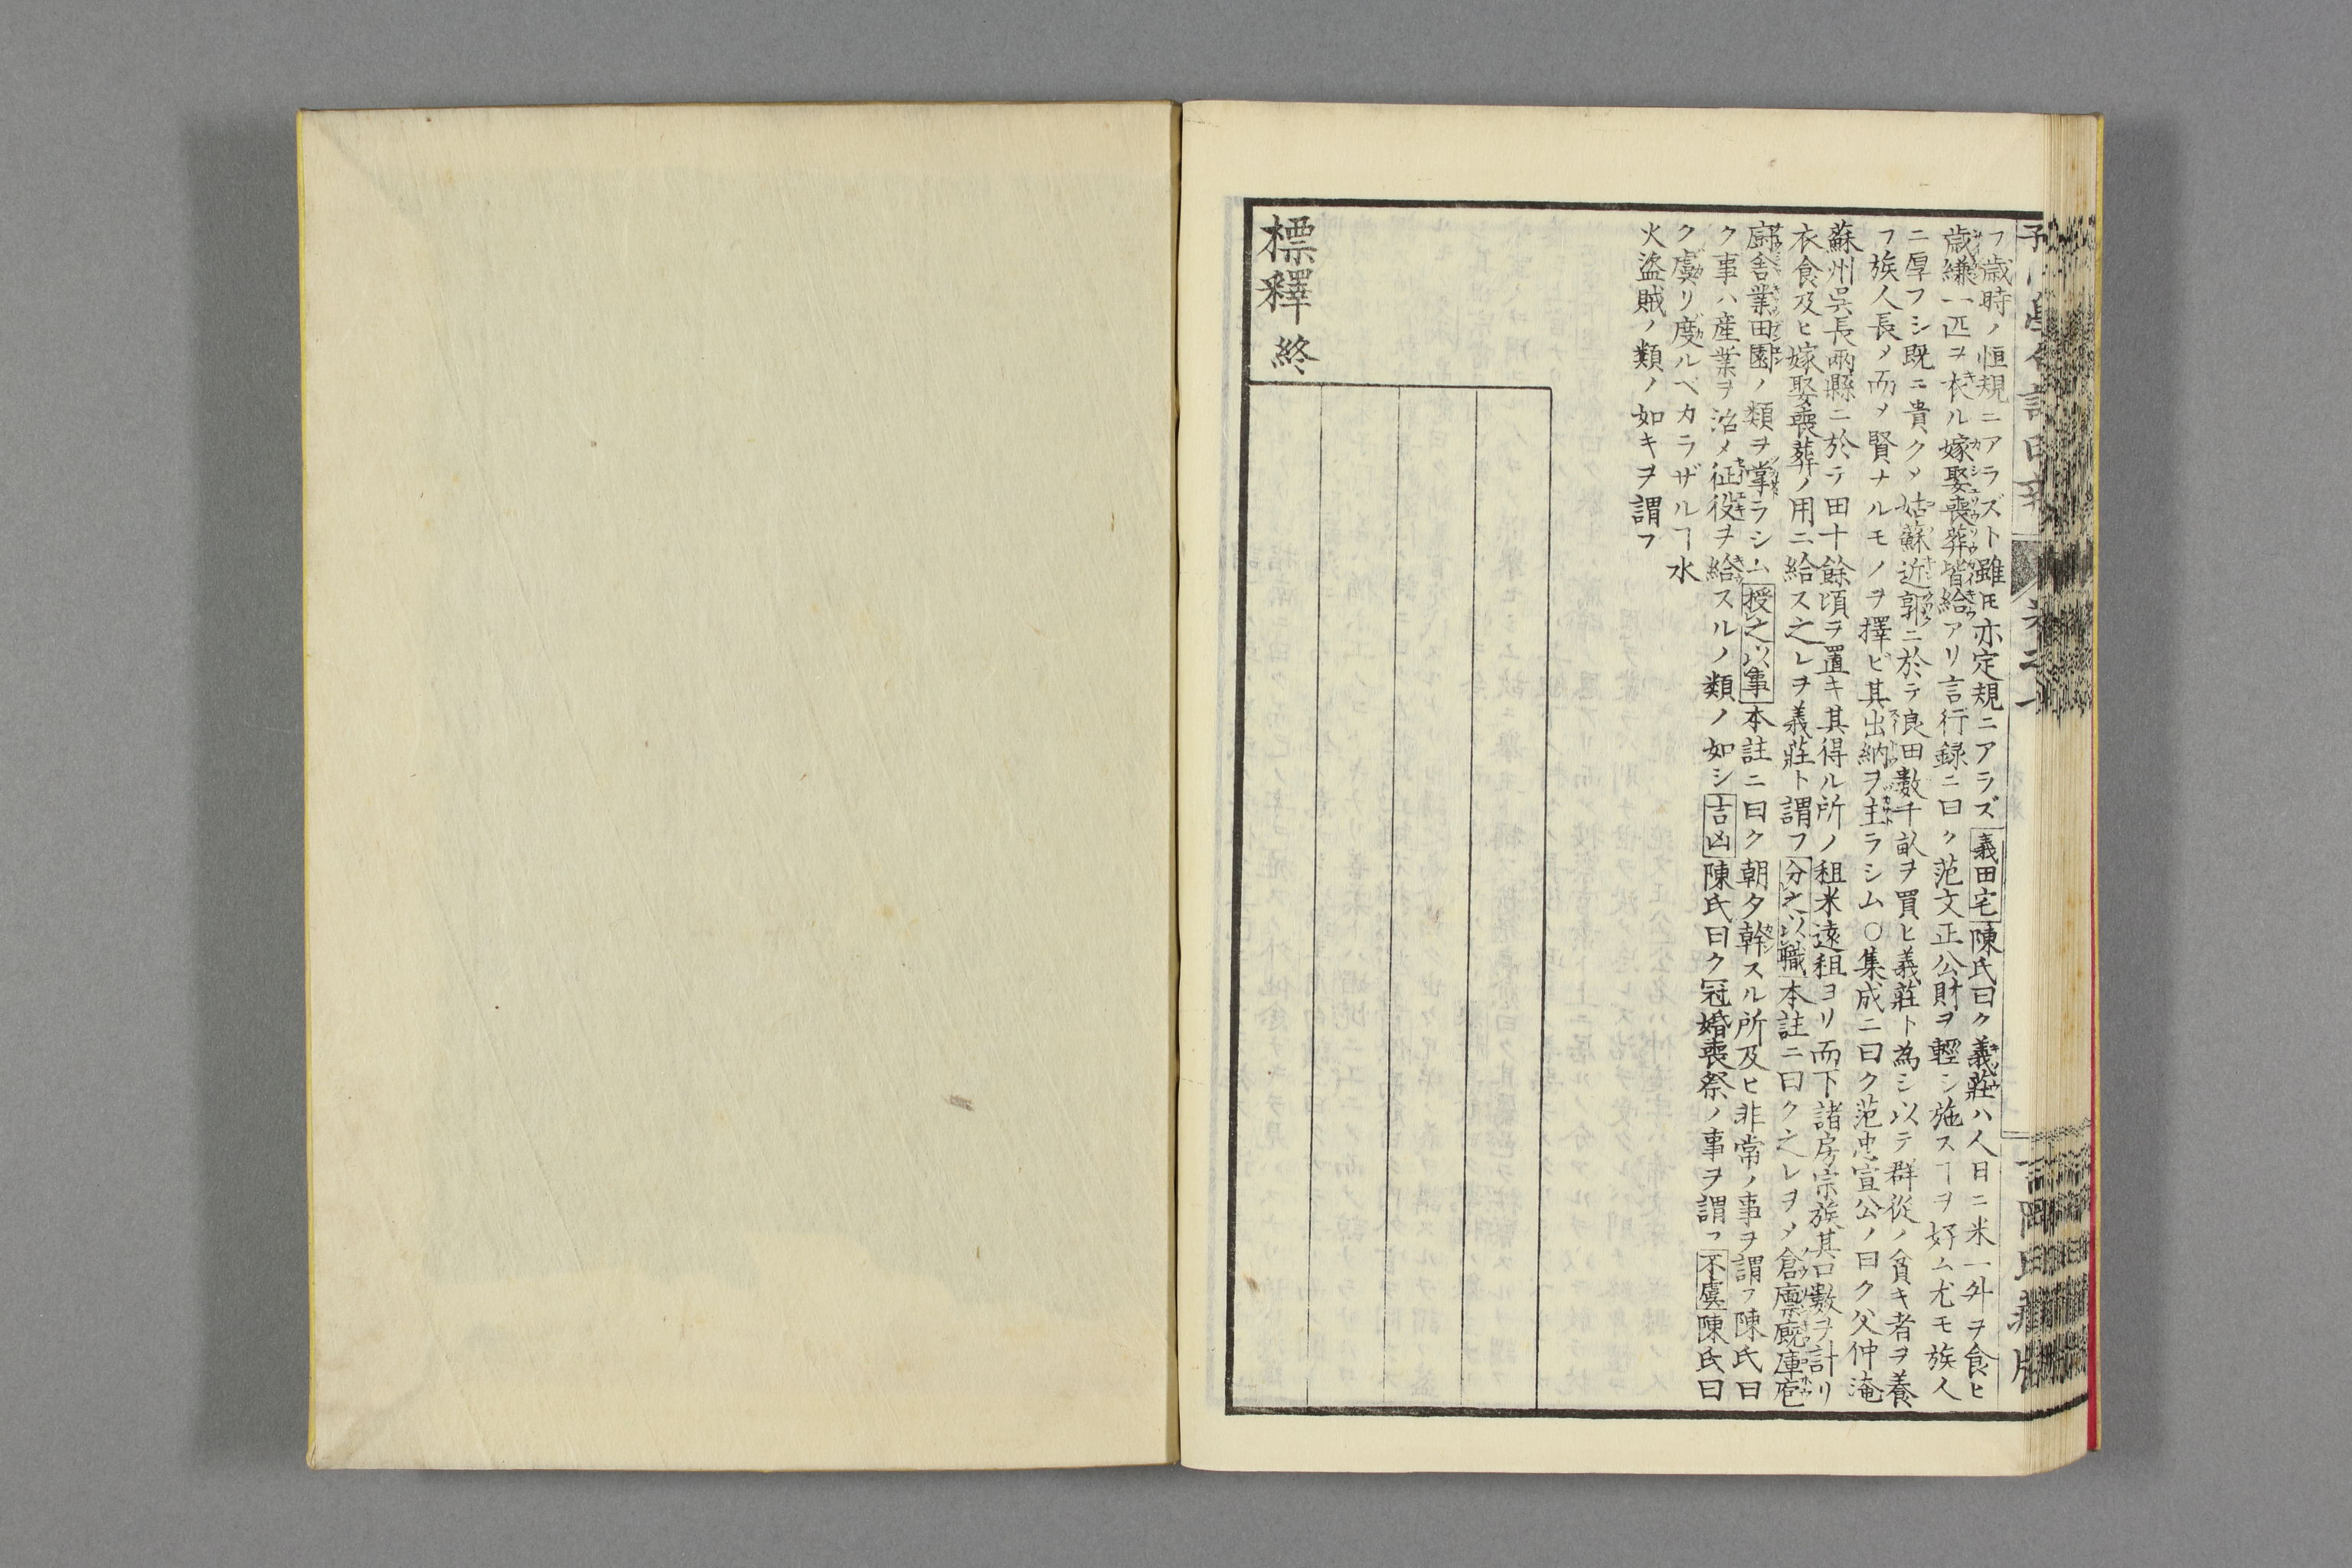 フ歳時ノ恒規ニアラズト雖𪜈亦定規ニアラズ義田宅陳氏曰ク義莊ハ人日ニ米一升ヲ食ヒ
歳縑一匹ヲ衣ル嫁娶喪葬皆給アリ言行録ニ曰ク范文正公財ヲ輕シ施スヿヲ好ム尤モ族人
ニ厚フシ既ニ貴クメ姑蘇近郭ニ於テ良田數千畝ヲ買ヒ義莊ト為シ以テ群從ノ貧キ者ヲ養
フ族人長メ而メ賢ナルモノヲ擇ビ其出納ヲ主ラシム○集成ニ曰ク范忠宣公ノ曰ク父仲淹
蘇州呉長兩縣ニ於テ田十餘頃ヲ置キ其得ル所ノ租米遠租ヨリ而下諸房宗族其口數ヲ計リ
衣食及ヒ嫁娶喪葬ノ用ニ給ス之レヲ義莊ト謂フ分之以職本註ニ曰ク之レヲメ倉廩廐庫庖
廚舎業田園ノ類ヲ掌ラシム授之以事本註ニ曰ク朝夕幹スル所及ヒ非常ノ事ヲ謂フ陳氏曰
ク事ハ産業ヲ治メ征役ヲ給スルノ類ノ如シ吉凶陳氏曰ク冠婚喪祭ノ事ヲ謂フ不虞陳氏曰
ク虞リ度ルベカラザルヿ水
火盜賊ノ類ノ如キヲ謂フ
標釋終